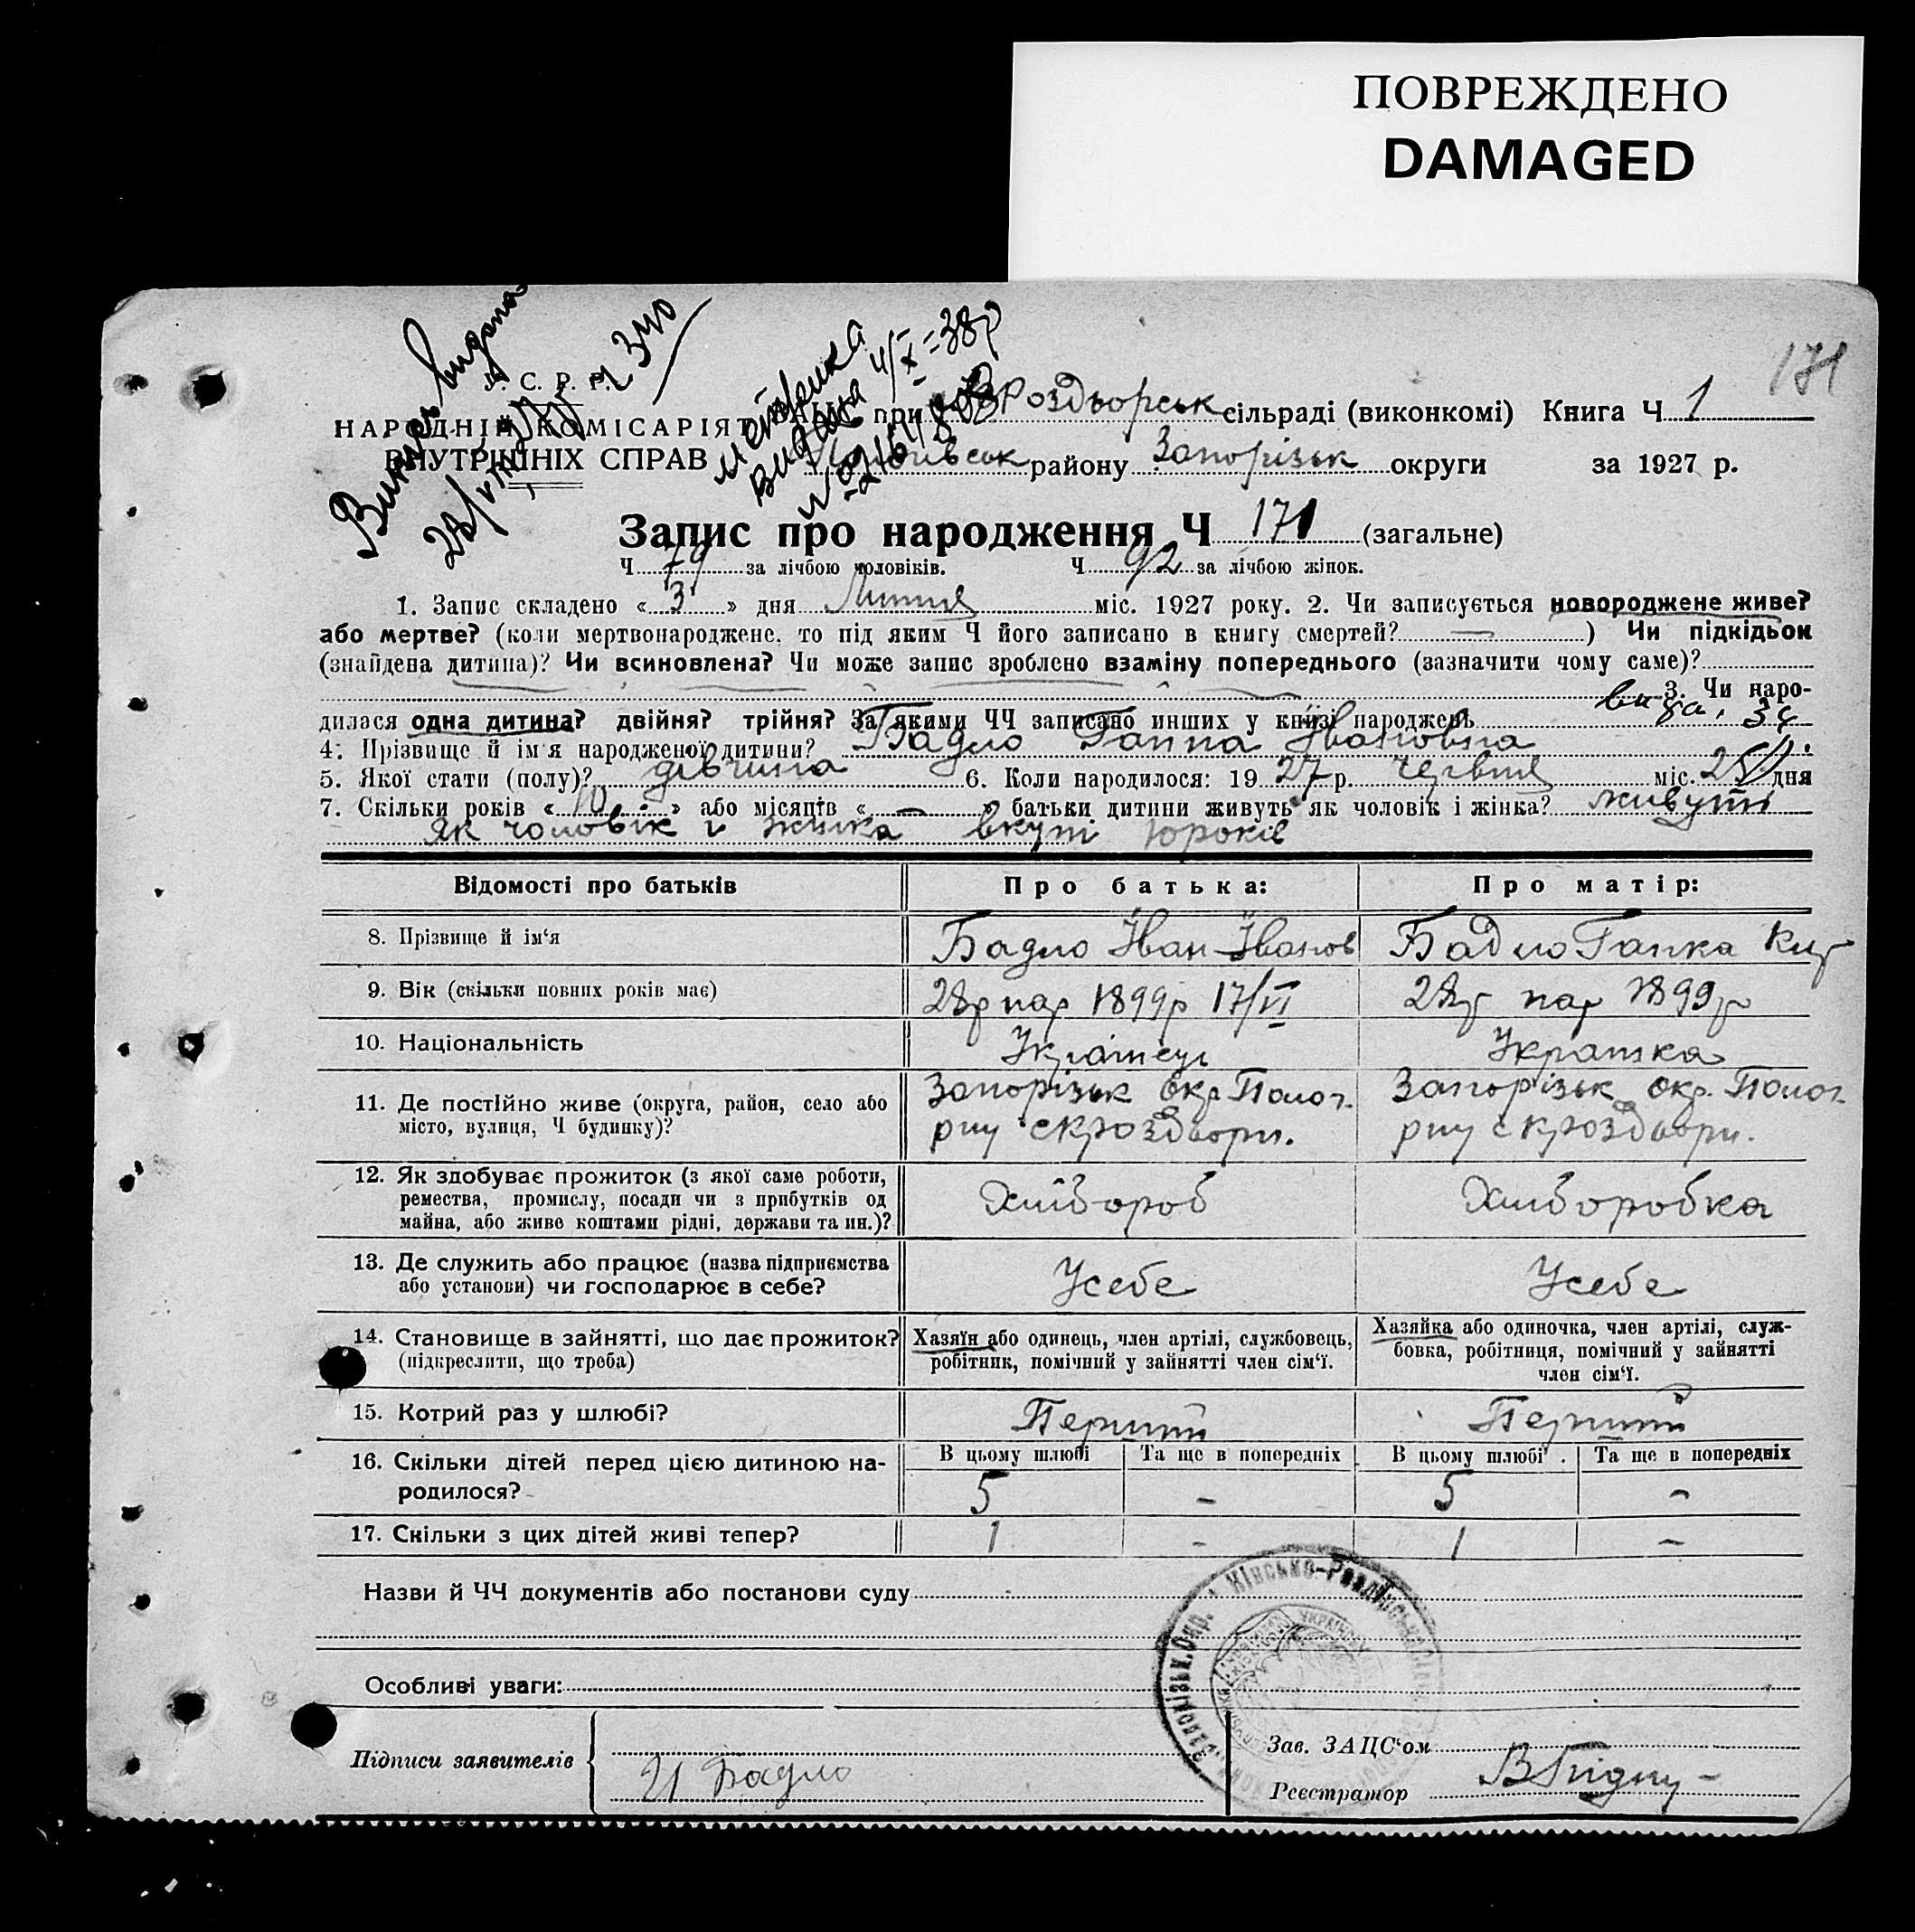 ПОВРЕЖДЕНО
DAMAGED
171
У. С. Р. Р.
НАРОДНІЙ КОМІСАРІЯТ
ВНУТРІШНІХ СПРАВ
Витяг видана
метрика
видана 4/X-38р
при Кроздворськ сільраді (виконкомі) Книга Ч 1
району Запорізьк округи за 1927 р.
Запис про народження Ч 171 (загальне)
Ч 79 за лічбою чоловіків. Ч 92 за лічбою жінок.
1. Запис складено « 3 » дня Липня міс. 1927 року. 2. Чи записується новороджене живе?
або мертве? (коли мертвонароджене, то під яким Ч його записано в книгу смертей? — ) Чи підкідьок
(знайдена дитина)? Чи всиновлена? Чи може запис зроблено взаміну попереднього (зазначити чому саме)?
3. Чи наро-
дилася одна дитина? двійня? трійня? За якими ЧЧ записано инших у книзі народжень
4. Прізвище й ім'я народженої дитини? Бадло Ганна Івановна
5. Якої стати (полу)? дівчина 6. Коли народилося: 19 27 р. червня міс. 25 дня
7. Скільки років « 10 » або місяців « — » батьки дитини живуть як чоловік і жінка? живуть
як чоловік і жінка вкупі 10 років
Відомості про батьків Про батька: Про матір:
8. Прізвище й ім'я Бадло Іван Іванов Бадло Ганка Кир
9. Вік (скільки повних років має) 28р нар 1899р 17/VI 28р нар 1899р
10. Національність Українець Українка
11. Де постійно живе (округа, район, село або
місто, вулиця, Ч будинку)?
Запорізьк окр. Полог.
рну с Кроздвори.
Запорізьк окр. Полог.
рну с Кроздвори.
12. Як здобуває прожиток (з якої саме роботи,
ремества, промислу, посади чи з прибутків од
майна, або живе коштами рідні, держави та ин.)?
Хлібороб Хліборобка
13. Де служить або працює (назва підприємства
або установи) чи господарює в себе?
Усебе Усебе
14. Становище в зайнятті, що дає прожиток?
(підкреслити, що треба)
Хазяїн або одинець, член артілі, службовець,
робітник, помічний у зайнятті член сім'ї.
Хазяйка або одиночка, член артілі, служ-
бовка, робітниця, помічний у зайнятті
член сім'ї.
15. Котрий раз у шлюбі? Перший Перший
16. Скільки дітей перед цією дитиною на-
родилося?
В цьому шлюбі Та ще в попередніх В цьому шлюбі Та ще в попередніх
5 - 5 -
17. Скільки з цих дітей живі тепер? 1 - 1 -
Назви й ЧЧ документів або постанови суду
Запорізьк. Окр. Кінсько-Роздорівська
Особливі уваги:
Підписи заявителів И Бадло
Зав. ЗАЦС'ом
Реєстратор